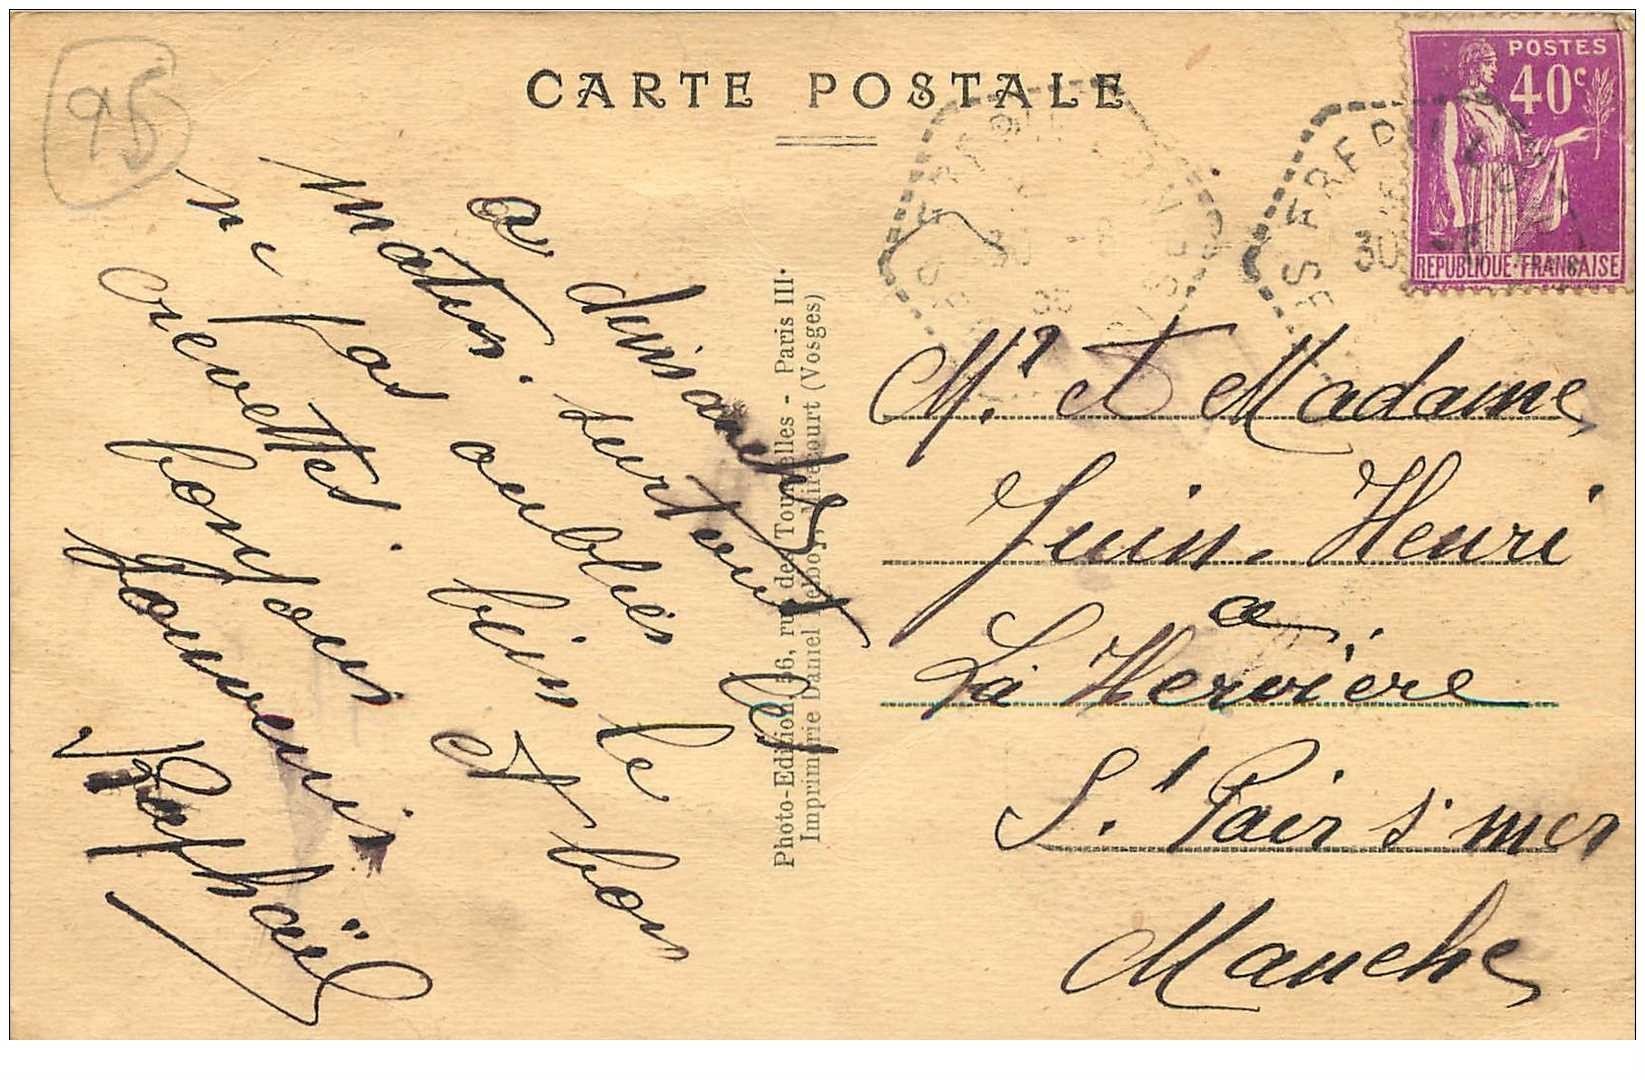 95
CARTE POSTALE
POSTES
40c
REPUBLIQUE FRANCAISE
30
30
a dimanche
matin. surtout
ne pas oublies
crevettes. bien le
bonjour et bon
souvenir
Raphaël
Photo-Edition, 56, rue des Tournelles - Paris III.
Imprimerie Daniel Delboy, Mirecourt (Vosges)
Mr et Madame
Juin. Henri
a
La Hervière
St Pair s. mer
Manche